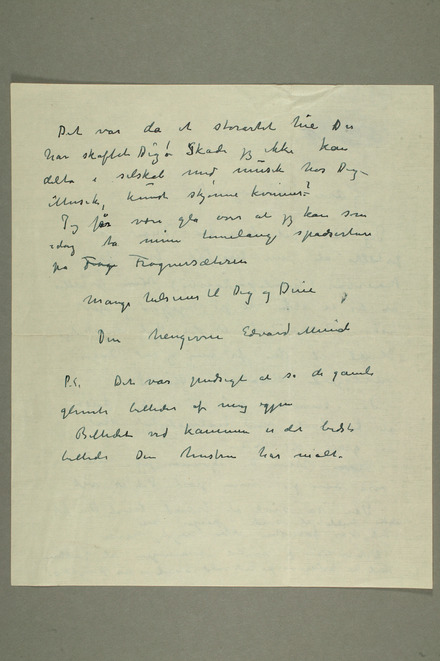 Det var da et storartet hüs Du
har skaffet Dig! Skade jeg ikke kan
delta i selskab med müsik hos Dig –
Müsik, künst skjønne kvinner!
Jeg får være gla over at jeg kan som
idag ta mine timelange spadserture
på Frogn Frognersæteren
Mange hilsener til Dig og Dine
Din hengivne Edvard Munch
P.S. Det var hyggeligt at se de gamle
glemte billeder af mig igjen
Billedet ved kaminen er det bedste
billede Din hustru har malt.